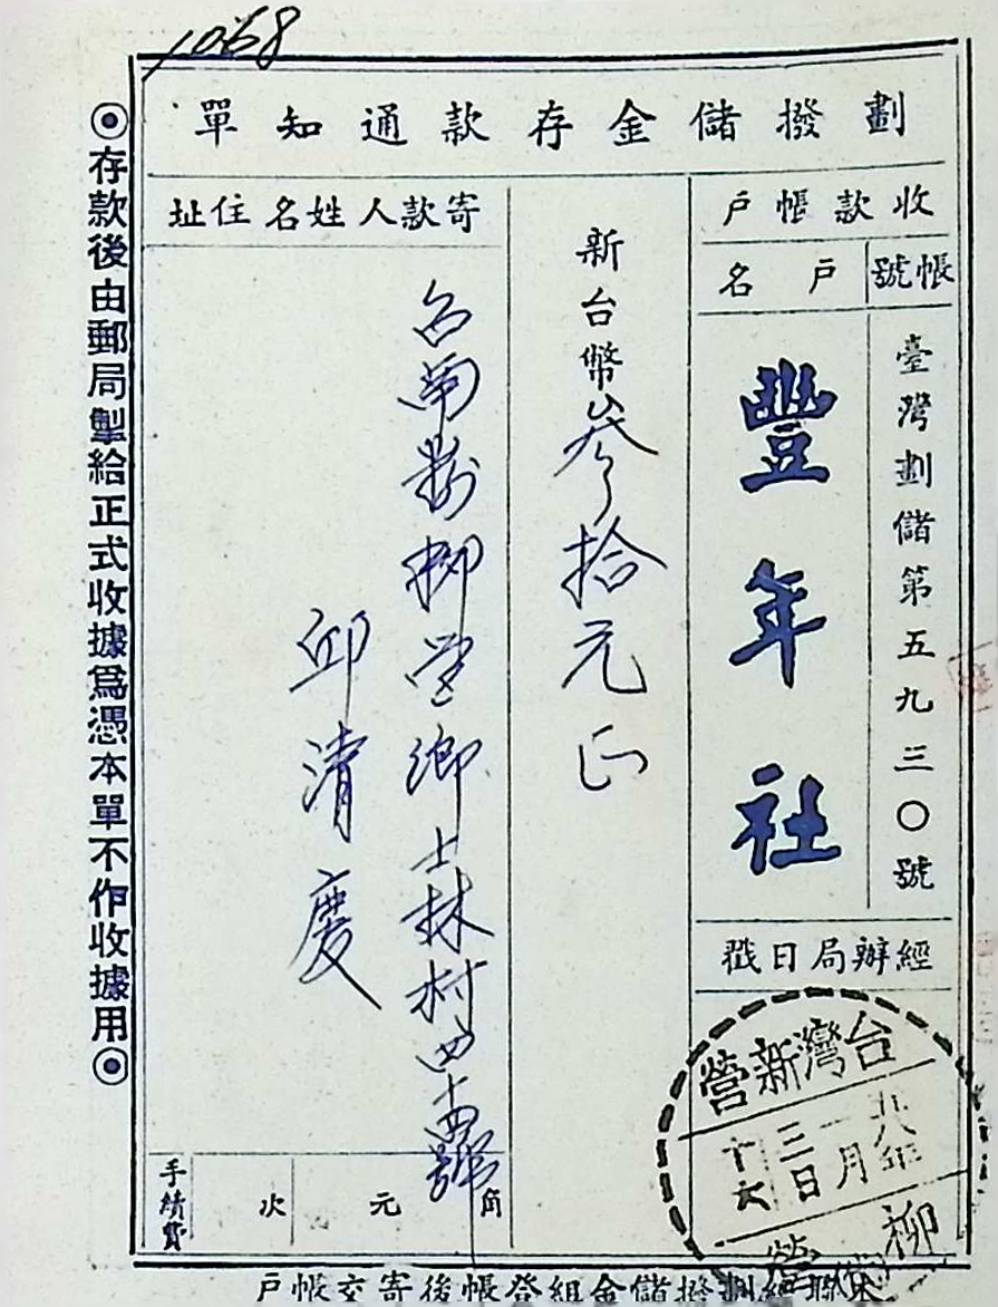 1068
劃撥儲金存款通知單
收款帳戶
帳號
戶名
臺灣劃儲第五九三〇號
豐年社
新台幣叁拾元正
寄款人姓名住址
台南縣柳營鄉士林村四十四號
邱清慶
經辦局日戳
台灣新營
八年
一月
三日
十六
柳營
手續費
次
元
角
◉存款後由郵局掣給正式收據爲憑本單不作收據用◉
劃撥儲金組登帳後寄交帳戶